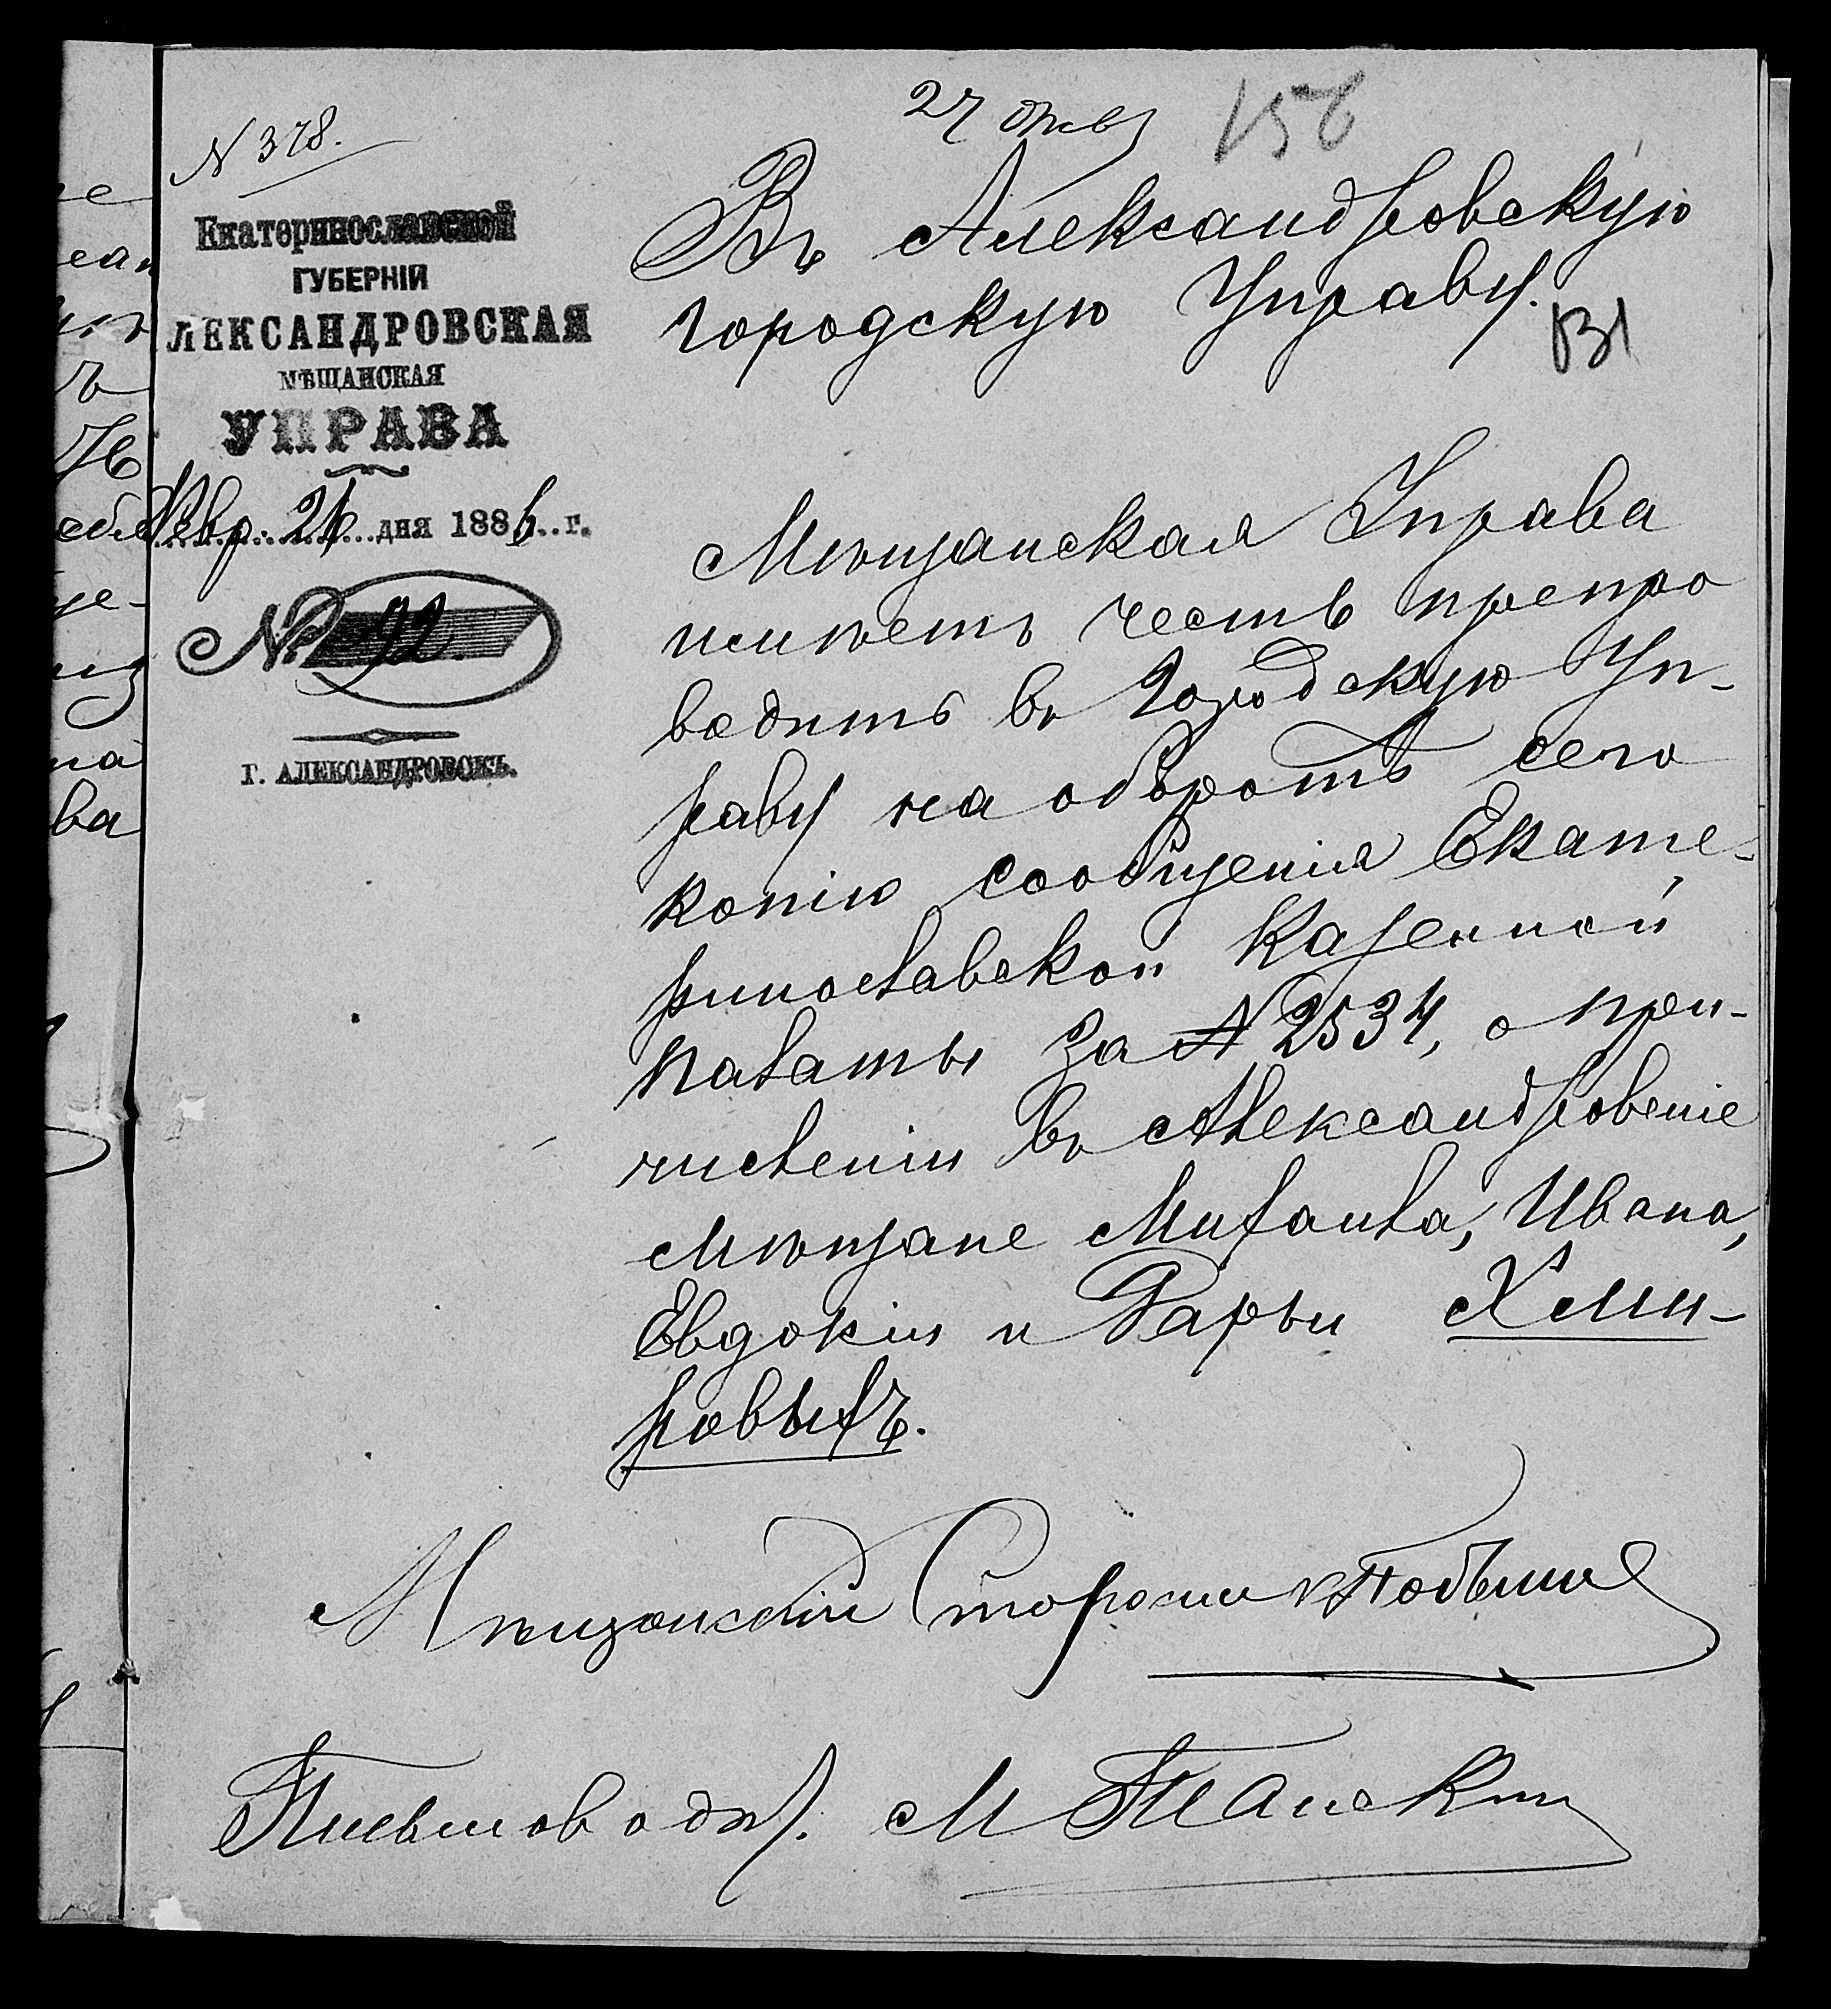 27 Февр
156
N 378.
Екатеринославской
ГУБЕРНІИ
ЛЕКСАНДРОВСКАЯ
МѢЩАНСКАЯ
УПРАВА
Февр. 26 дня 1886 г.
№ 92.
Г. АЛЕКСАНДРОВСКЪ.
Въ Александровскую
городскую Управу.
131
Мѣщанская Управа
имѣетъ честь препро
водить въ Городскую Уп-
раву на оборотѣ сего
копію сообщенія Екате-
ринославской Казенной
Палаты за № 2534, о при-
численіи въ Александровскіе
мѣщане Михаила, Ивана,
Евдокіи и Дарьи Хми-
ровыхъ.
Мѣщанскій Староста
Письмовод.